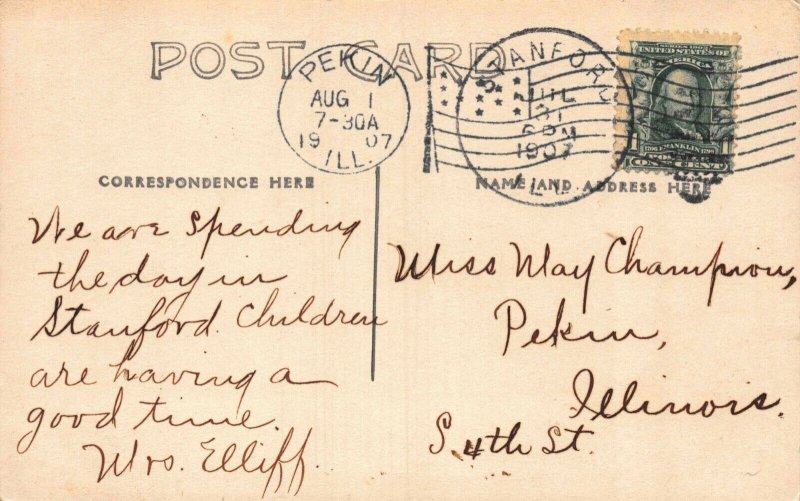 POST CARD
PEKIN
AUG 1
7-30A
1907
ILL.
STANFORD
JUL
31
6PM
1907
ILL.
SERIES 1902
UNITED STATES OF
AMERICA
1706 FRANKLIN 1790
POSTAGE
ONE CENT
CORRESPONDENCE HERE
NAME AND ADDRESS HERE
We are spending
the day in
Stanford. Children
are having a
good time.
Mrs. Elliff.
Miss May Champion,
Pekin,
Illinois.
S 4th St.